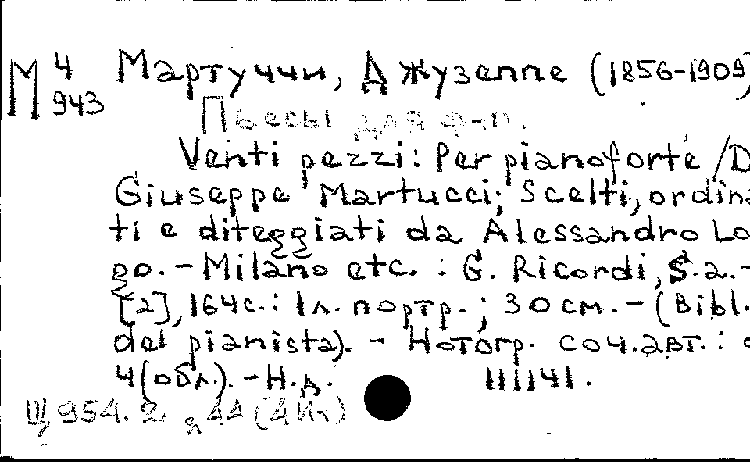 М 4 Мартуччи, Джузеппе (1856-1909)
943
Пьесы для ф-п.
Venti pezzi: Per pianoforte / D
Giuseppe Martucci; Scelti, ordina
ti e diteggiati da Alessandro Lo
go. - Milano etc. : G. Ricordi, S.a. -
[2], 164с.: 1л. портр. ; 30 см. - (Bibl.
del pianista). - Нотогр. соч. авт. : с
4 (обл.). - Н.д. 111141.
Щ 954. 2.